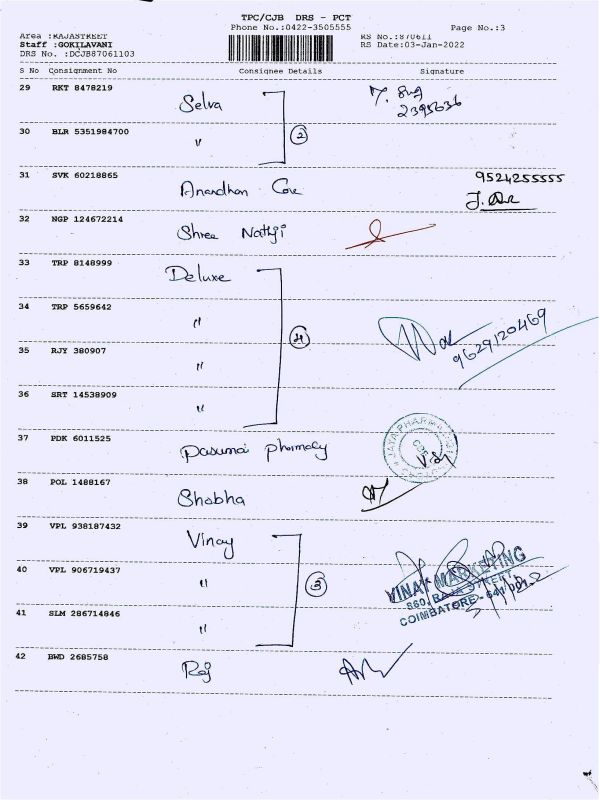 TPC/CJB DRS - PCT
Phone No.:0422-3505555 Page No.:3
Area :RAJASTREET RS No.:870611
Staff :GOKILAVANI RS Date:03-Jan-2022
DRS No. :DCJB87061103
S No Consignment No Consignee Details Signature
29 RKT 8478219 Selva
2395636
30 BLR 5351984700 〃 2
31 SVK 60218865 Anandhan Core 9524255555
32 NGP 124672214 Shree Nathji
33 TRP 8148999 Deluxe
34 TRP 5659642 〃 4
9629120469
35 RJY 380907 〃
36 SRT 14538909 〃
37 PDK 6011525 Pasumai pharmacy
38 POL 1488167 Shobha
39 VPL 938187432 Vinay
40 VPL 906719437 〃 3
VINAY MARKETING
860, RAJA STREET
COIMBATORE - 641
41 SLM 286714846 〃
42 BWD 2685758 Raj